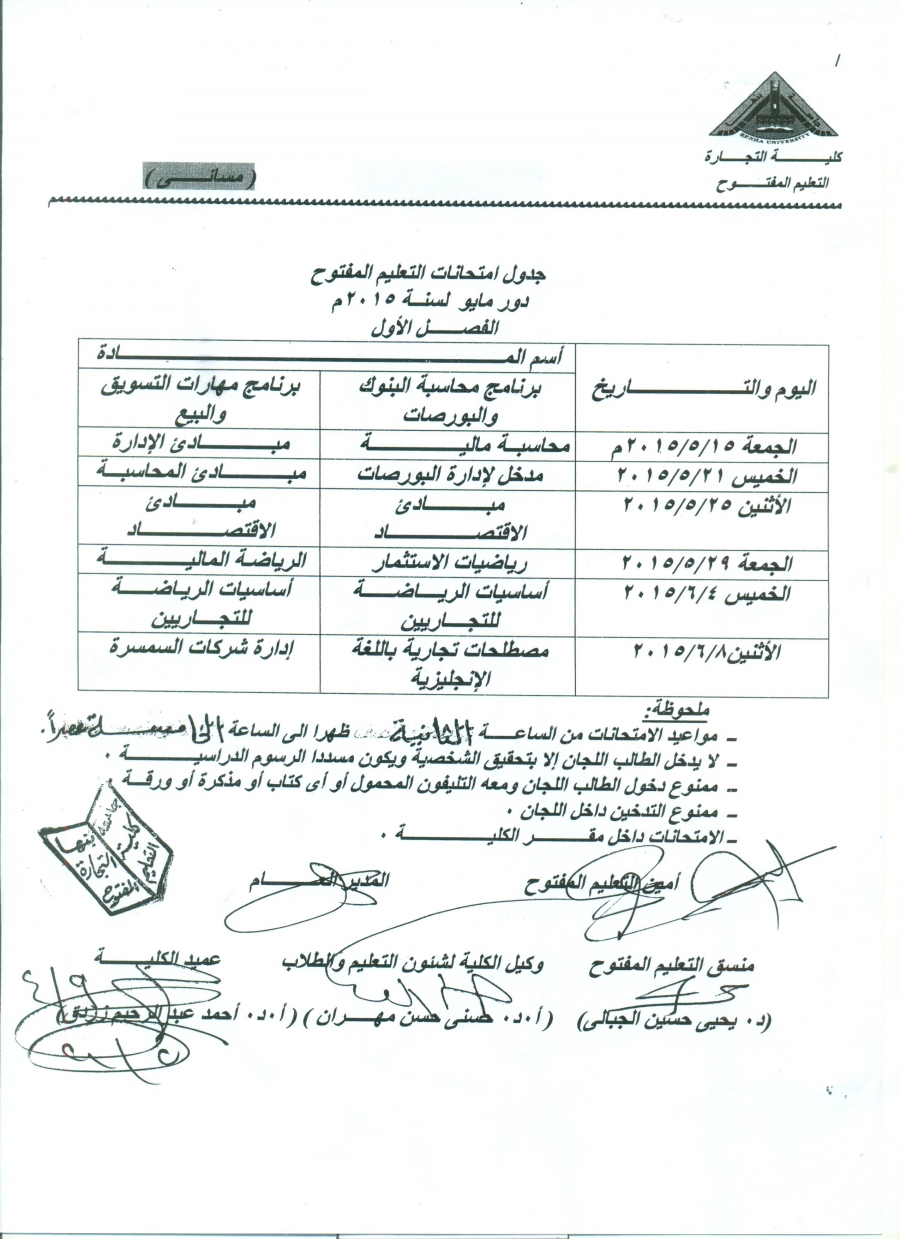 جامعة بنها
BENHA UNIVERSITY
كلية التجارة
التعليم المفتوح
(مسائى)
جدول امتحانات التعليم المفتوح
دور مايو لسنة ٢٠١٥م
الفصل الأول
اليوم والتاريخ أسم المادة
برنامج محاسبة البنوك والبورصات برنامج مهارات التسويق والبيع
الجمعة ٢٠١٥/٥/١٥م محاسبة مالية مبادئ الإدارة
الخميس ٢٠١٥/٥/٢١ مدخل لإدارة البورصات مبادئ المحاسبة
الأثنين ٢٠١٥/٥/٢٥ مبادئ الاقتصاد مبادئ الاقتصاد
الجمعة ٢٠١٥/٥/٢٩ رياضيات الاستثمار الرياضة المالية
الخميس ٢٠١٥/٦/٤ أساسيات الرياضة للتجاريين أساسيات الرياضة للتجاريين
الأثنين٢٠١٥/٦/٨ مصطلحات تجارية باللغة الإنجليزية إدارة شركات السمسرة
ملحوظة:
ـ مواعيد الامتحانات من الساعة الثانية ظهرا الى الساعة
ـ لا يدخل الطالب اللجان إلا بتحقيق الشخصية ويكون مسددا الرسوم الدراسية ٠
ـ ممنوع دخول الطالب اللجان ومعه التليفون المحمول أو أى كتاب أو مذكرة أو ورقة ٠
ـ ممنوع التدخين داخل اللجان ٠
ـ الامتحانات داخل مقر الكلية ٠
جامعة بنها
كلية التجارة
التعليم المفتوح
أمين التعليم المفتوح المدير العام
منسق التعليم المفتوح وكيل الكلية لشئون التعليم والطلاب عميد الكلية
(د٠ يحيى حسين الجبالى) (أ٠د٠ حسنى حسن مهران) (أ٠د٠ أحمد عبد الرحيم زردق)